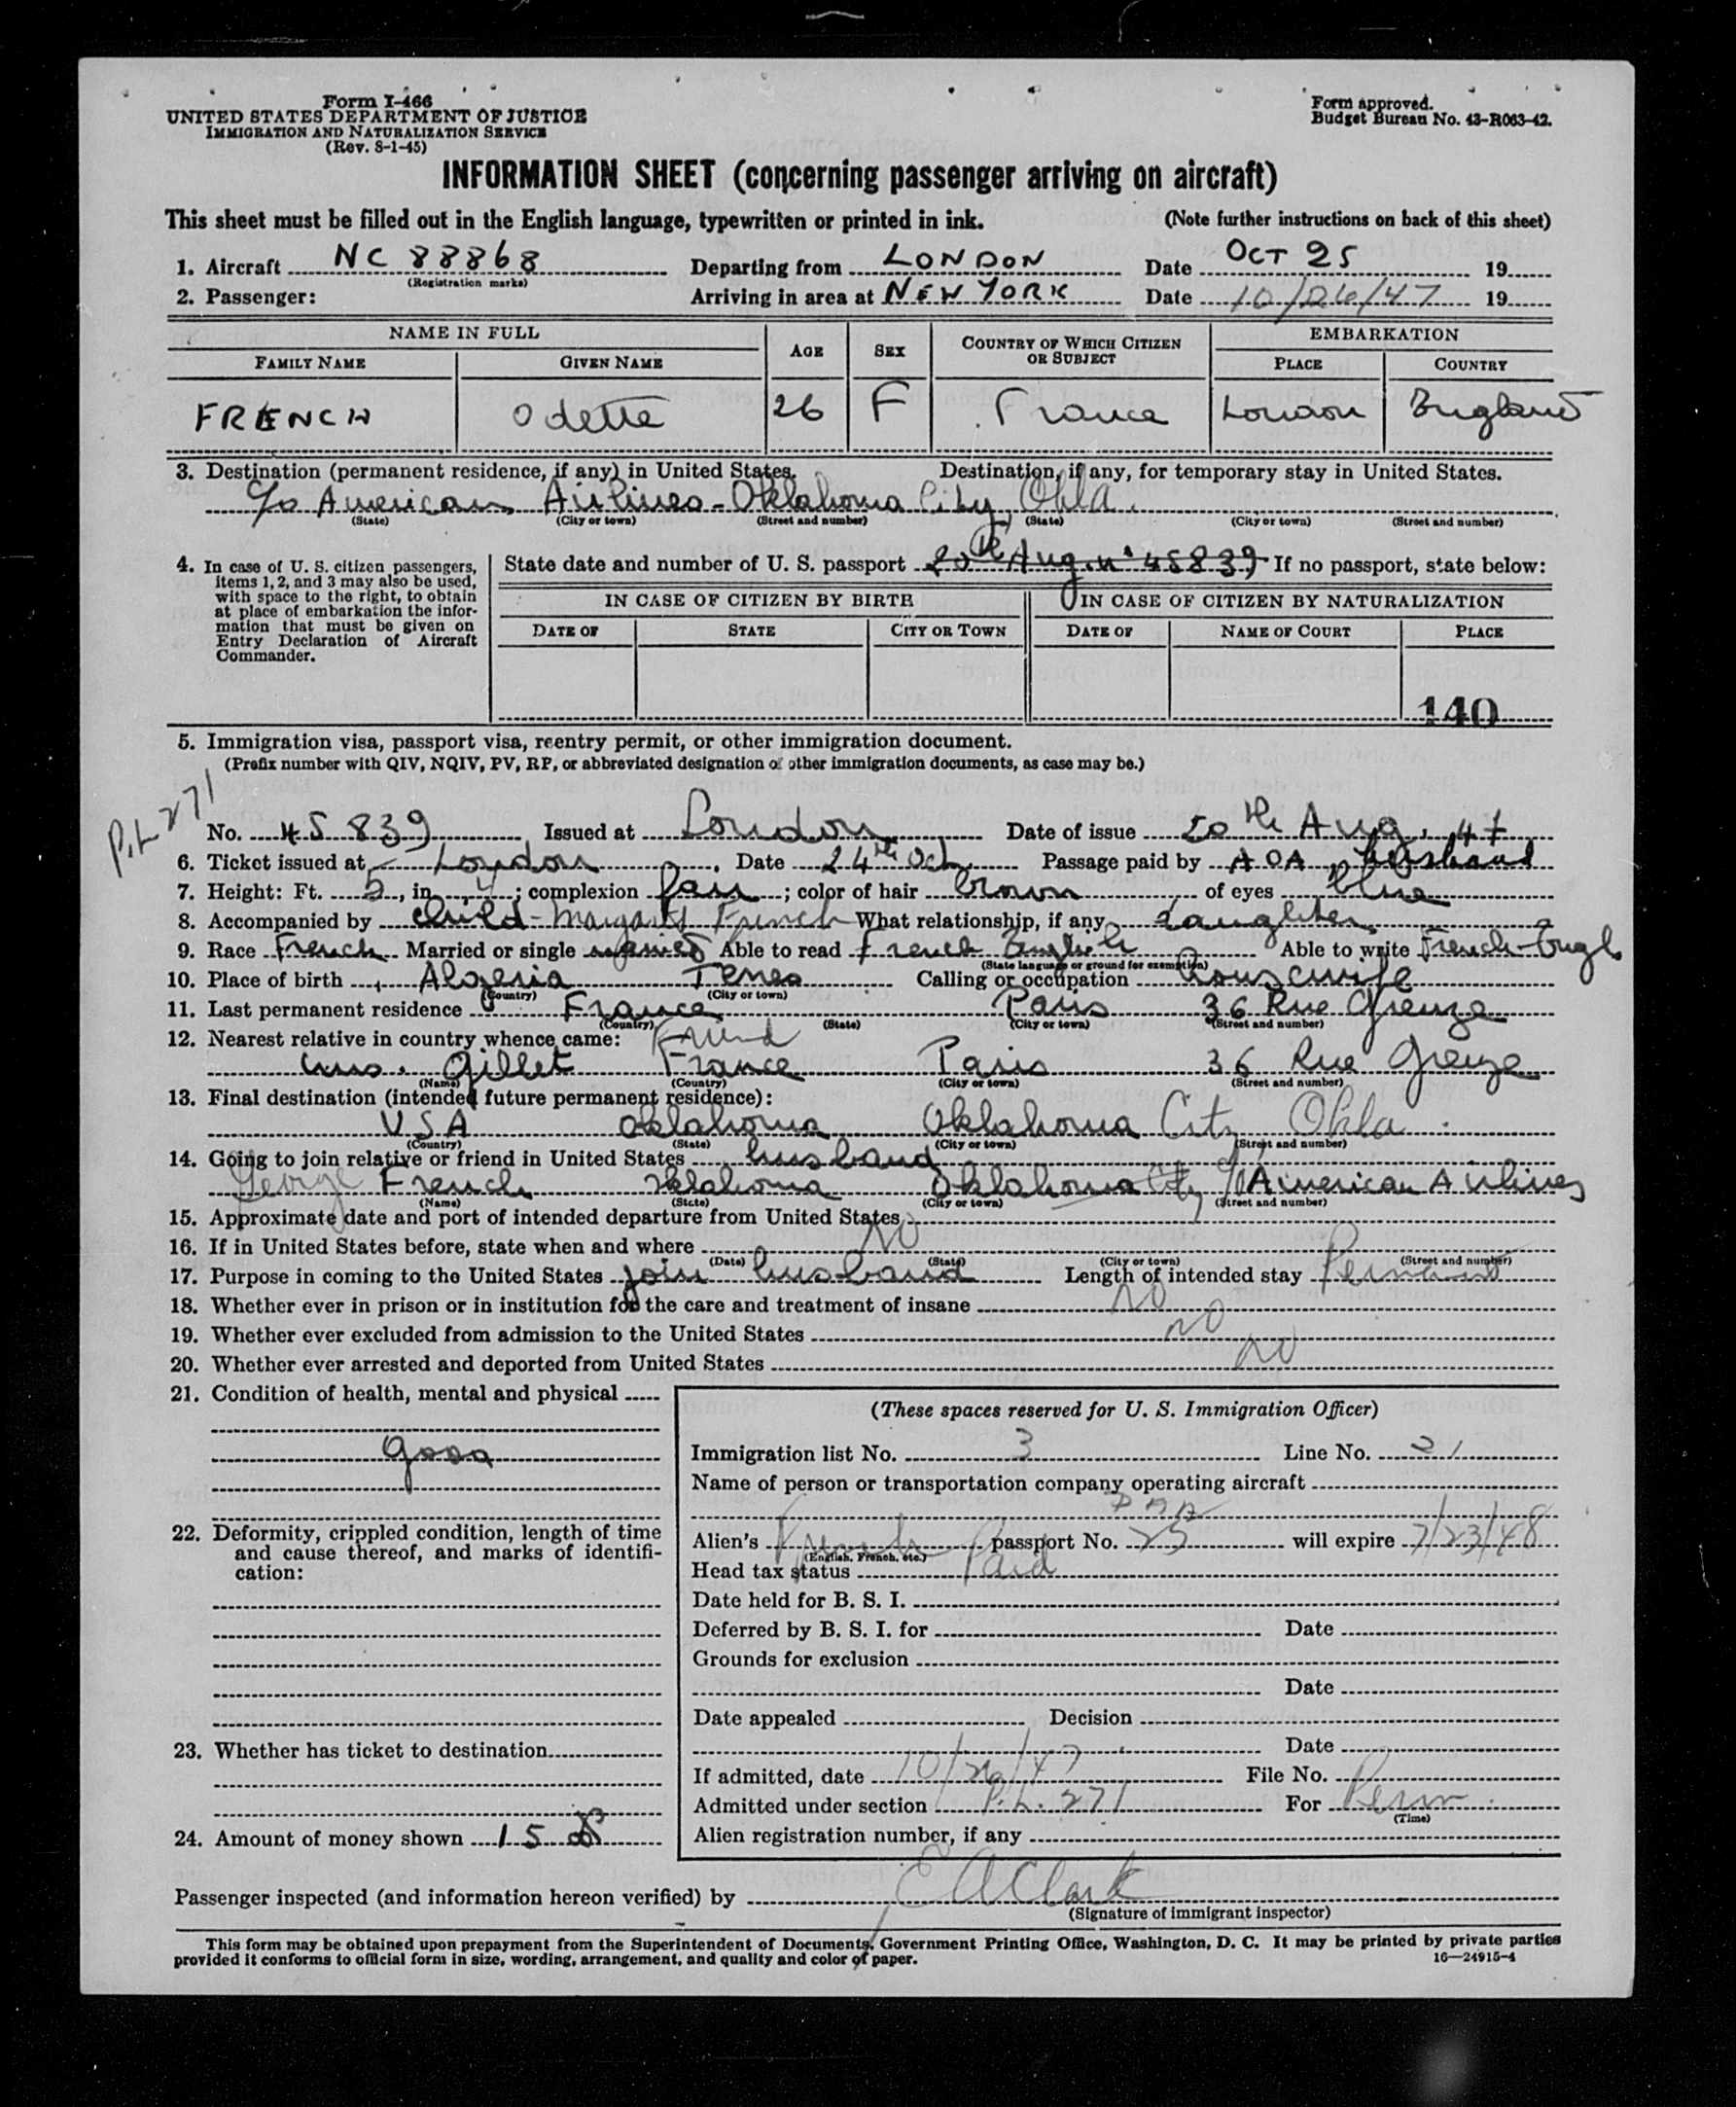 Form I-466
UNITED STATES DEPARTMENT OF JUSTICE
IMMIGRATION AND NATURALIZATION SERVICE
(Rev. 8-1-45)
Form approved.
Budget Bureau No. 43-R063-42.
INFORMATION SHEET (concerning passenger arriving on aircraft)
This sheet must be filled out in the English language, typewritten or printed in ink. (Note further instructions on back of this sheet)
1. Aircraft NC 88868 Departing from LONDON Date OCT 25 19
(Registration marks)
2. Passenger: Arriving in area at NEW YORK Date 10/26/47 19
NAME IN FULL AGE SEX COUNTRY OF WHICH CITIZEN OR SUBJECT EMBARKATION
FAMILY NAME GIVEN NAME PLACE COUNTRY
FRENCH Odette 26 F France London England
3. Destination (permanent residence, if any) in United States. Destination, if any, for temporary stay in United States.
c/o American Airlines - Oklahoma City, Okla.
(State) (City or town) (Street and number) (State) (City or town) (Street and number)
4. In case of U. S. citizen passengers, items 1, 2, and 3 may also be used, with space to the right, to obtain at place of embarkation the information that must be given on Entry Declaration of Aircraft Commander.
State date and number of U. S. passport 20th Aug. n° 45839 If no passport, state below:
IN CASE OF CITIZEN BY BIRTH IN CASE OF CITIZEN BY NATURALIZATION
DATE OF STATE CITY OR TOWN DATE OF NAME OF COURT PLACE
140
5. Immigration visa, passport visa, reentry permit, or other immigration document.
(Prefix number with QIV, NQIV, PV, RP, or abbreviated designation of other immigration documents, as case may be.)
P.L 271
No. 45839 Issued at London Date of issue 20th Aug. 47
6. Ticket issued at London Date 24th Oct. Passage paid by AOA husband
7. Height: Ft. 5, in. 4; complexion fair; color of hair brown of eyes blue
8. Accompanied by child - Margaret French What relationship, if any daughter
9. Race French Married or single married Able to read French English Able to write French-Engl
(State language or ground for exemption)
10. Place of birth Algeria Tenes Calling or occupation housewife
(Country) (City or town)
11. Last permanent residence France Paris 36 Rue Greuze
(Country) (State) (City or town) (Street and number)
12. Nearest relative in country whence came: Friend
Mrs. Gillet France Paris 36 Rue Greuze
(Name) (Country) (City or town) (Street and number)
13. Final destination (intended future permanent residence):
USA Oklahoma Oklahoma City Okla.
(Country) (State) (City or town) (Street and number)
14. Going to join relative or friend in United States husband
George French Oklahoma Oklahoma City c/o American Airlines
(Name) (State) (City or town) (Street and number)
15. Approximate date and port of intended departure from United States
16. If in United States before, state when and where NO
(Date) (State) (City or town) (Street and number)
17. Purpose in coming to the United States join husband Length of intended stay Permanent
18. Whether ever in prison or in institution for the care and treatment of insane NO
19. Whether ever excluded from admission to the United States NO
20. Whether ever arrested and deported from United States NO
21. Condition of health, mental and physical
good
22. Deformity, crippled condition, length of time and cause thereof, and marks of identification:
23. Whether has ticket to destination
24. Amount of money shown 15 $
(These spaces reserved for U. S. Immigration Officer)
Immigration list No. 3 Line No. 21
Name of person or transportation company operating aircraft
Alien's French passport No. 25 will expire 7/23/48
(English, French, etc.)
Head tax status Paid
Date held for B. S. I.
Deferred by B. S. I. for Date
Grounds for exclusion
Date
Date appealed Decision
Date
If admitted, date 10/26/47 File No.
Admitted under section P.L. 271 For Perm.
(Time)
Alien registration number, if any
Passenger inspected (and information hereon verified) by E A Clark
(Signature of immigrant inspector)
This form may be obtained upon prepayment from the Superintendent of Documents, Government Printing Office, Washington, D. C. It may be printed by private parties
provided it conforms to official form in size, wording, arrangement, and quality and color of paper. 16—24915-4